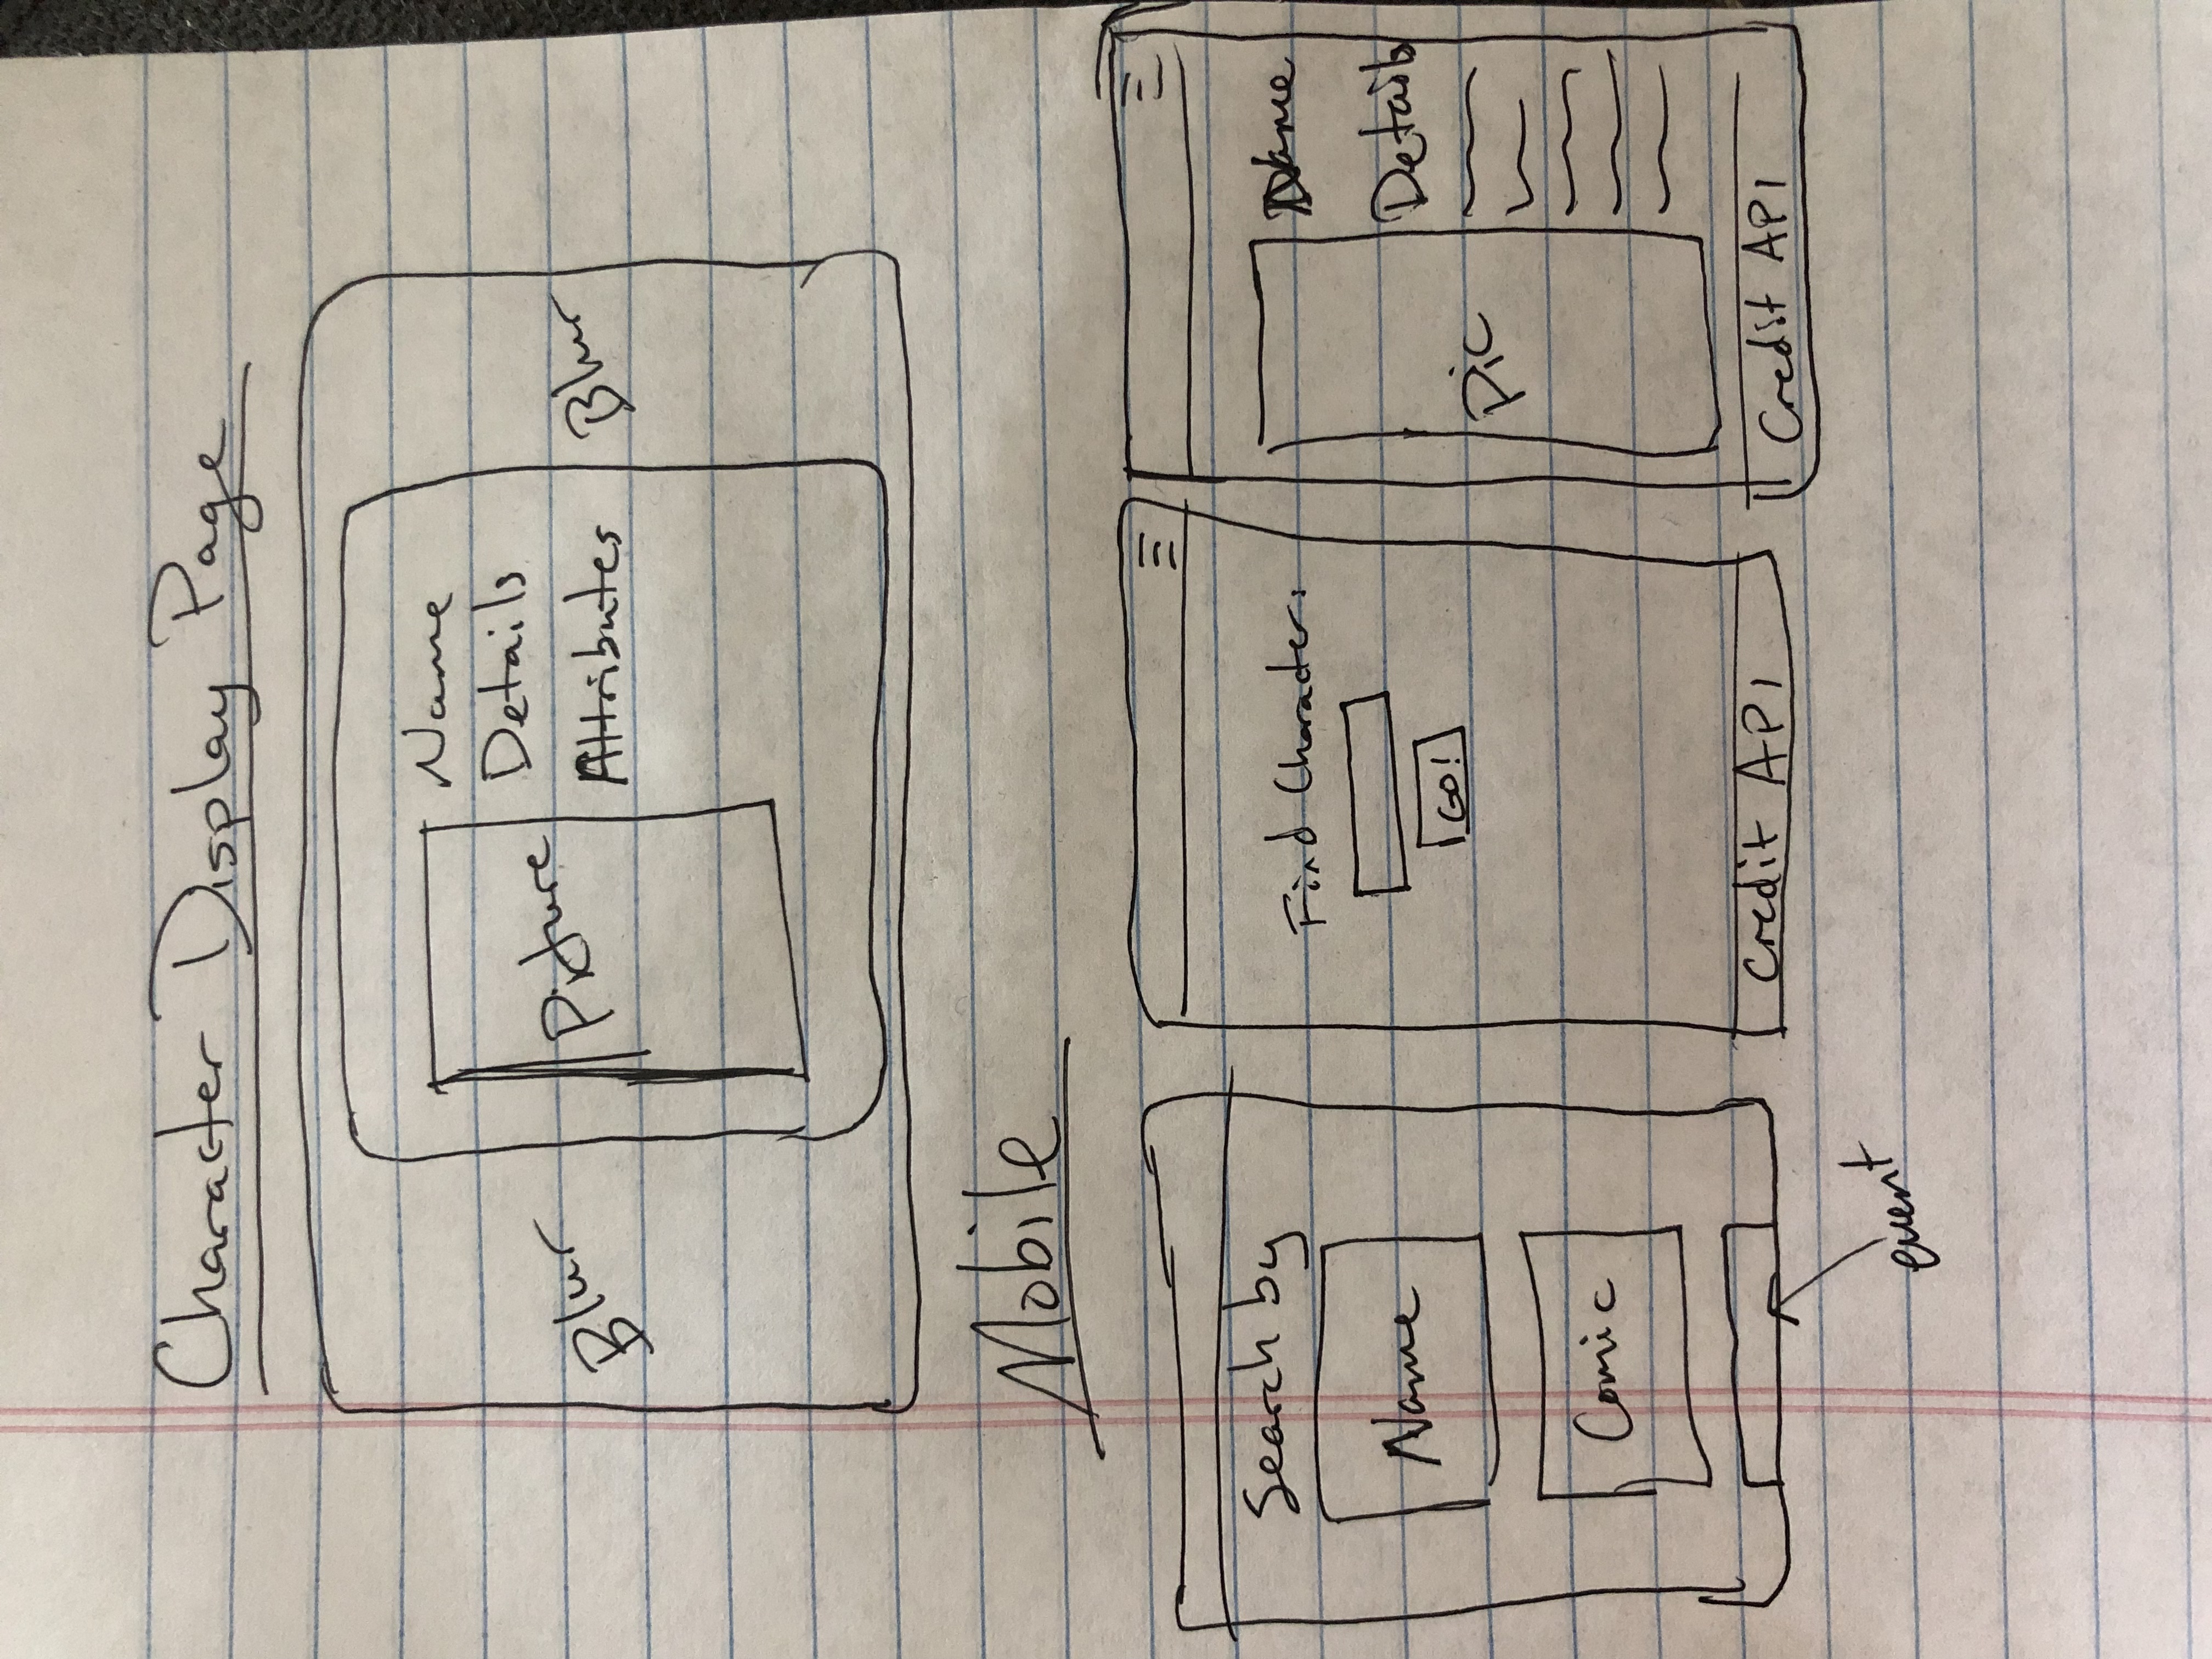 Character Display Page
Blur
Picture
Name
Details
Attributes
Blur
Mobile
Search by
Name
Comic
event
Find Character:
GO!
Credit API
Name
Details
Pic
Credit API